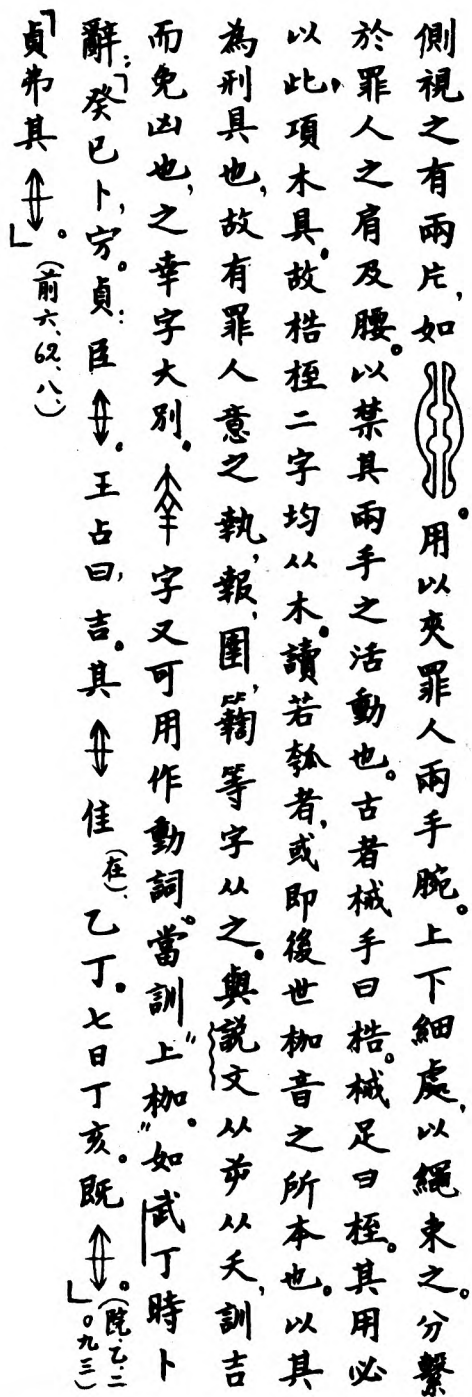 側視之有兩片,如 用以夾罪人兩手腕。上下細處,以繩束之。分繫
於罪人之肩及腰。以禁其兩手之活動也。古者械手曰梏。械足曰桎。其用必
以此項木具。故梏桎二字均从木。讀若瓠者,或即後世枷音之所本也。以其
為刑具也,故有罪人意之執,報,圉,䈴等字从之。與說文从屰从夭,訓吉
而免凶也,之幸字大別。字又可用作動詞。當訓"上枷。"如武丁時卜
辭:「癸巳卜,㝉。貞:臣 。王占曰,吉。其 隹(在)乙丁。七日丁亥。既 。」(院.乙.二〇九三)
「貞弗其 。」(前六、62、八、)